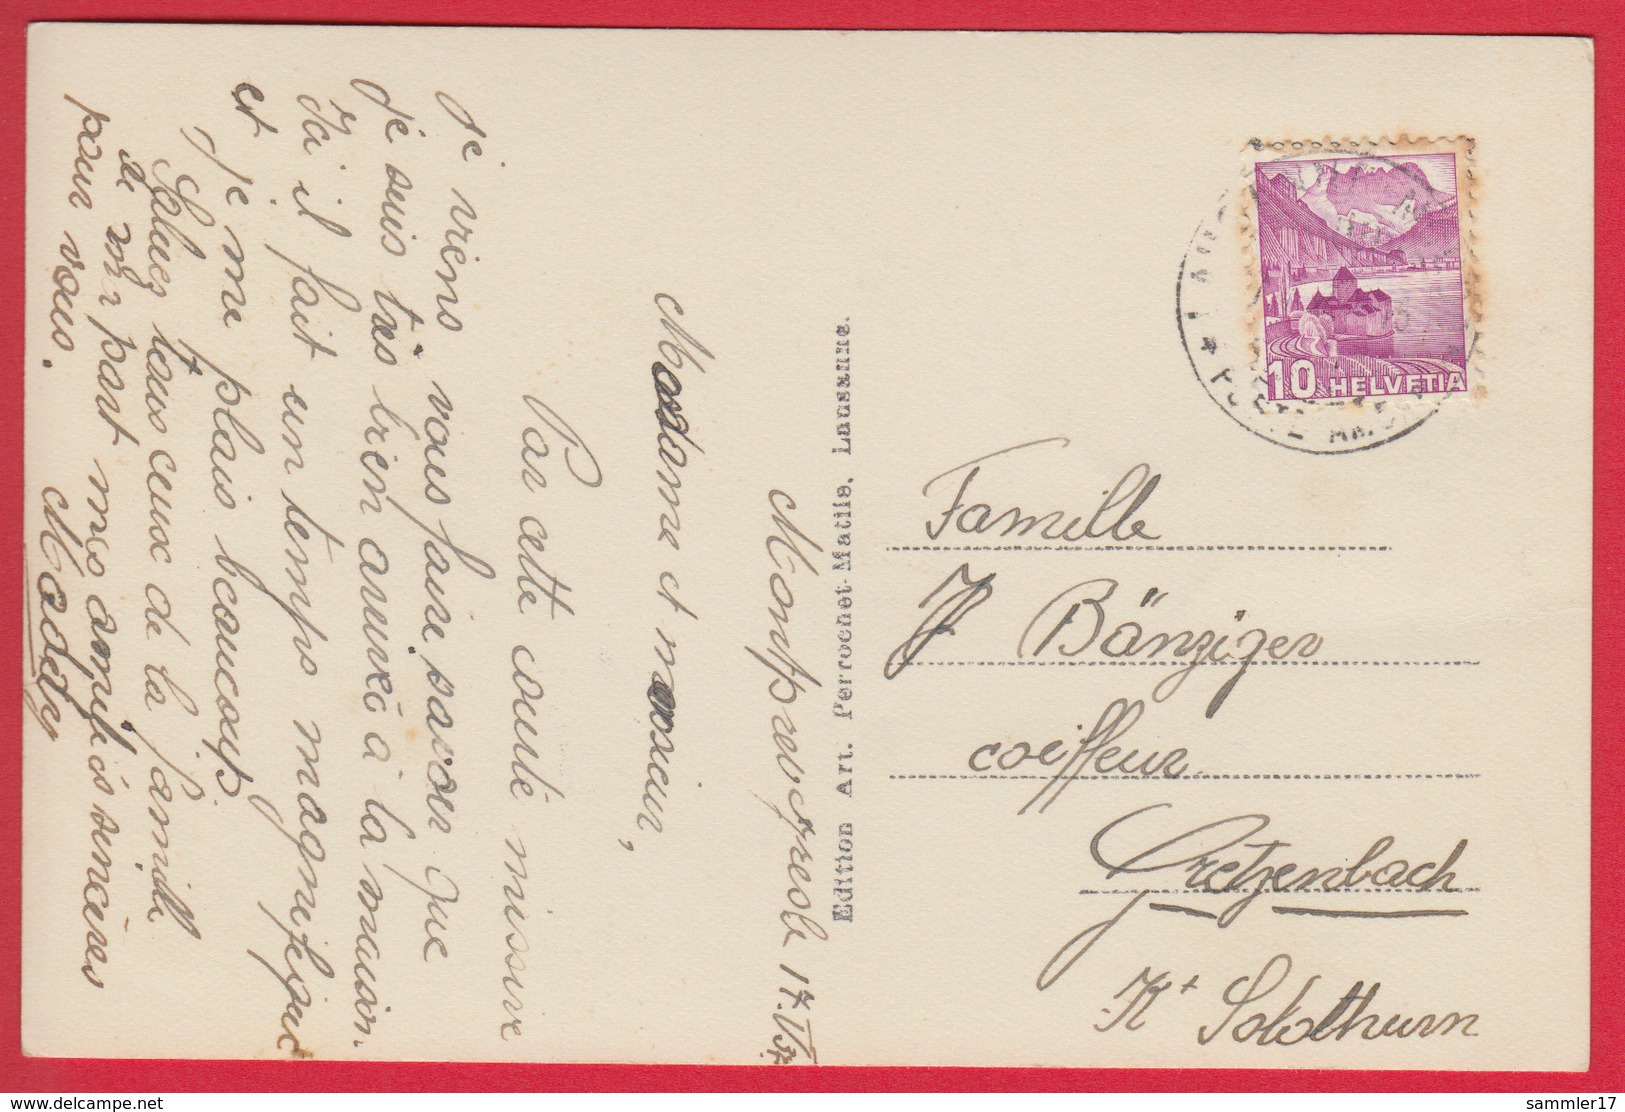 Montpreveyres le 17.V.37
Madame et monsieur,
Par cette courte missive
je viens vous faire savoir que
je suis très bien arrivée à la maison.
Ici il fait un temps magnifique
et je me plais beaucoup.
Saluez tous ceux de la famille
de ma part mes amitiés sincères
pour vous.
Madeley
Edition Art. Perrochet-Matile, Lausanne.
10 HELVETIA
Famille
J Bänziger
coiffeur.
Gretzenbach
Kt Solothurn
delcampe.net
sammler17